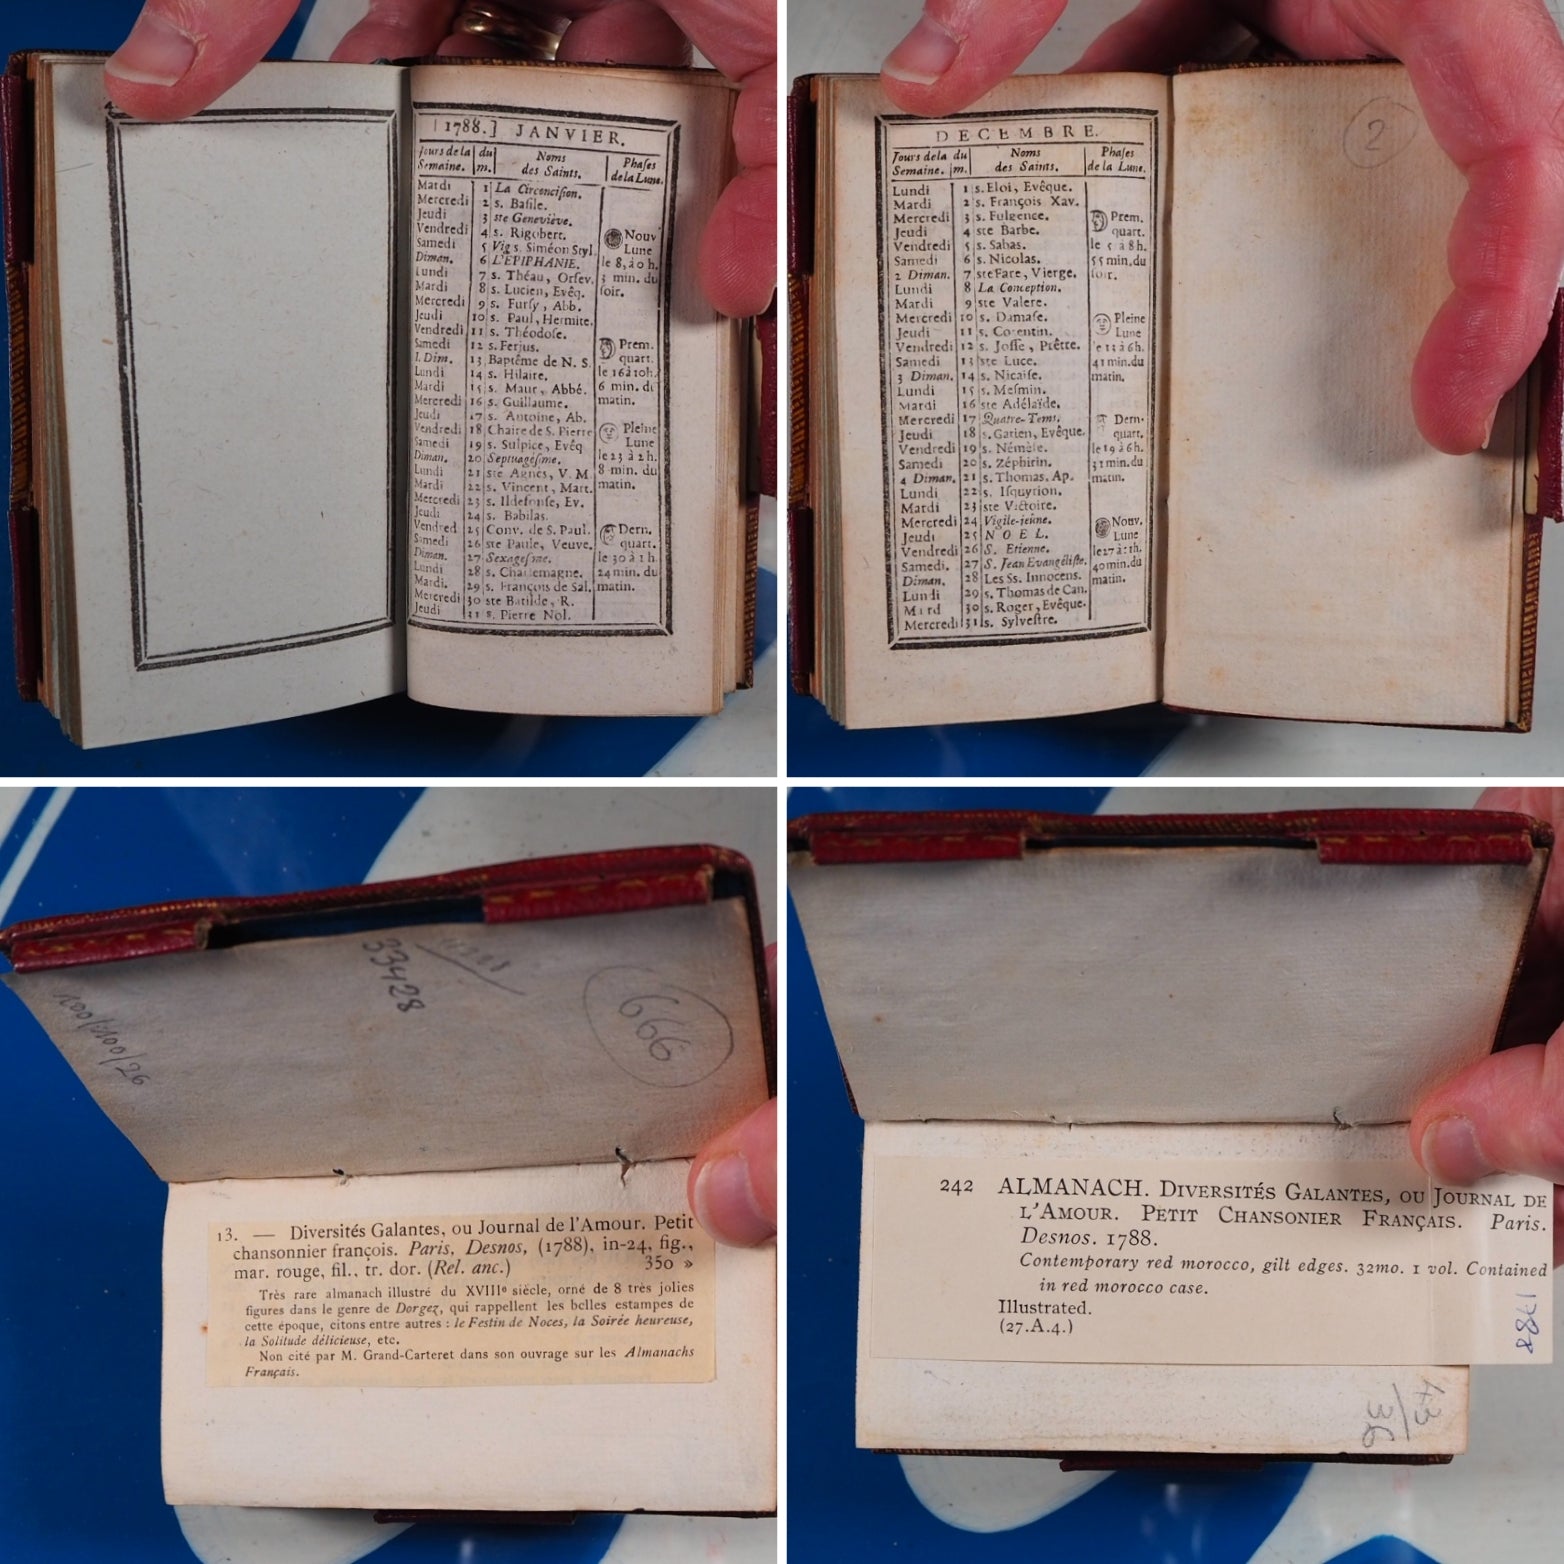 [1788.] JANVIER.
Jours de la Semaine. | du m. | Noms des Saints. | Phases de la Lune.
Mardi 1 La Circoncision.
Mercredi 2 s. Basile.
Jeudi 3 ste Geneviève.
Vendredi 4 s. Rigobert.
Samedi 5 Vig s. Siméon Styl.
Diman. 6 L'EPIPHANIE.
Lundi 7 s. Théau, Orfev.
Mardi 8 s. Lucien, Evêq.
Mercredi 9 s. Fursy, Abb.
Jeudi 10 s. Paul, Hermite.
Vendredi 11 s. Théodose.
Samedi 12 s. Ferjus.
1. Dim. 13 Baptême de N. S.
Lundi 14 s. Hilaire.
Mardi 15 s. Maur, Abbé.
Mercredi 16 s. Guillaume.
Jeudi 17 s. Antoine, Ab.
Vendredi 18 Chaire de S. Pierre
Samedi 19 s. Sulpice, Evêq
Diman. 20 Septuagésime.
Lundi 21 ste Agnès, V. M.
Mardi 22 s. Vincent, Mart.
Mercredi 23 s. Ildefonse, Ev.
Jeudi 24 s. Babilas.
Vendred 25 Conv. de S. Paul.
Samedi 26 ste Paule, Veuve.
Diman. 27 Sexagesime.
Lundi 28 s. Charlemagne.
Mardi. 29 s. François de Sal.
Mercredi 30 ste Batilde, R.
Jeudi 31 s. Pierre Nol.
Nouv
Lune
le 8, à 0 h.
3 min. du
soir.
Prem.
quart.
le 16 à 10h.
6 min. du
matin.
Pleine
Lune
le 23 à 2h.
8 min. du
matin.
Dern.
quart.
le 30 à 1 h.
24 min. du
matin.
DECEMBRE.
Jours de la Semaine. | du m. | Noms des Saints. | Phases de la Lune.
Lundi 1 s. Eloi, Evêque.
Mardi 2 s. François Xav.
Mercredi 3 s. Fulgence.
Jeudi 4 ste Barbe.
Vendredi 5 s. Sabas.
Samedi 6 s. Nicolas.
2 Diman. 7 ste Fare, Vierge.
Lundi 8 La Conception.
Mardi 9 ste Valere.
Mercredi 10 s. Damase.
Jeudi 11 s. Corentin.
Vendredi 12 s. Josse, Prêtre.
Samedi 13 ste Luce.
3 Diman. 14 s. Nicaise.
Lundi 15 s. Mesmin.
Mardi 16 ste Adélaïde.
Mercredi 17 Quatre-Tems.
Jeudi 18 s. Gatien, Evêque.
Vendredi 19 s. Némèse.
Samedi 20 s. Zéphirin.
4 Diman. 21 s. Thomas, Ap.
Lundi 22 s. Isquyrion.
Mardi 23 ste Victoire.
Mercredi 24 Vigile-jeûne.
Jeudi 25 NOEL.
Vendredi 26 S. Etienne.
Samedi. 27 S. Jean Evangéliste.
Diman. 28 Les Ss. Innocens.
Lundi 29 s. Thomas de Can.
Mardi 30 s. Roger, Evêque.
Mercredi 31 s. Sylvestre.
Prem.
quart.
le 5 à 8h.
55 min. du
soir.
Pleine
Lune
6h.
41 min. du
matin.
Dern.
quart.
le 19 à 6h.
31 min. du
matin.
Nouv.
Lune
le 27
40 min. du
matin.
2
33428
666
13. — Diversités Galantes, ou Journal de l'Amour. Petit
chansonnier françois. Paris, Desnos, (1788), in-24, fig.,
mar. rouge, fil., tr. dor. (Rel. anc.) 350 »
Très rare almanach illustré du XVIIIe siècle, orné de 8 très jolies
figures dans le genre de Dorgez, qui rappellent les belles estampes de
cette époque, citons entre autres : le Festin de Noces, la Soirée heureuse,
la Solitude délicieuse, etc.
Non cité par M. Grand-Carteret dans son ouvrage sur les Almanachs
Français.
242 ALMANACH. DIVERSITÉS GALANTES, OU JOURNAL DE
L'AMOUR. PETIT CHANSONIER FRANÇAIS. Paris.
Desnos. 1788.
Contemporary red morocco, gilt edges. 32mo. 1 vol. Contained
in red morocco case.
Illustrated.
(27.A.4.)
1788